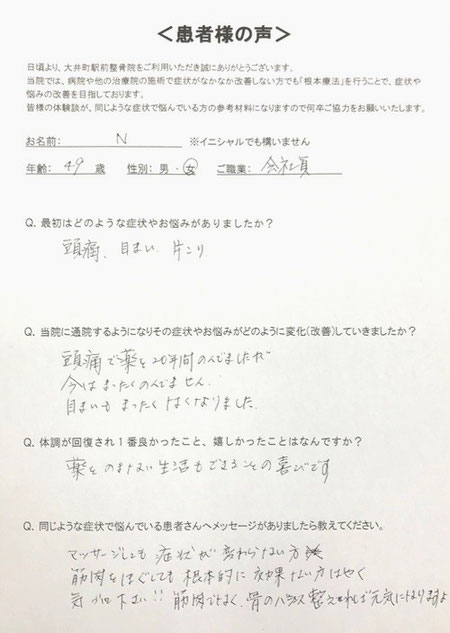 ＜患者様の声＞
日頃より、大井町駅前整骨院をご利用いただき誠にありがとうございます。
当院では、病院や他の治療院の施術で症状がなかなか改善しない方でも「根本療法」を行うことで、症状や
悩みの改善を目指しております。
皆様の体験談が、同じような症状で悩んでいる方の参考材料になりますので何卒ご協力をお願いいたします。
お名前: N ※イニシャルでも構いません
年齢: 49 歳 性別: 男・女 ご職業: 会社員
Q. 最初はどのような症状やお悩みがありましたか？
頭痛、目まい、片こり
Q. 当院に通院するようになりその症状やお悩みがどのように変化(改善)していきましたか？
頭痛で薬を20年間のんでましたが
今はまったくのんでません。
目まいもまったくなくなりました。
Q. 体調が回復され１番良かったこと、嬉しかったことはなんですか？
薬をのまない生活もできることの喜びです
Q. 同じような症状で悩んでいる患者さんへメッセージがありましたら教えてください。
マッサージしても症状が変わらない方
筋肉をほぐしても根本的に効果ない方はやく
気づいて下さい!! 筋肉でなく、骨のバランス整えれば元気になりますよ